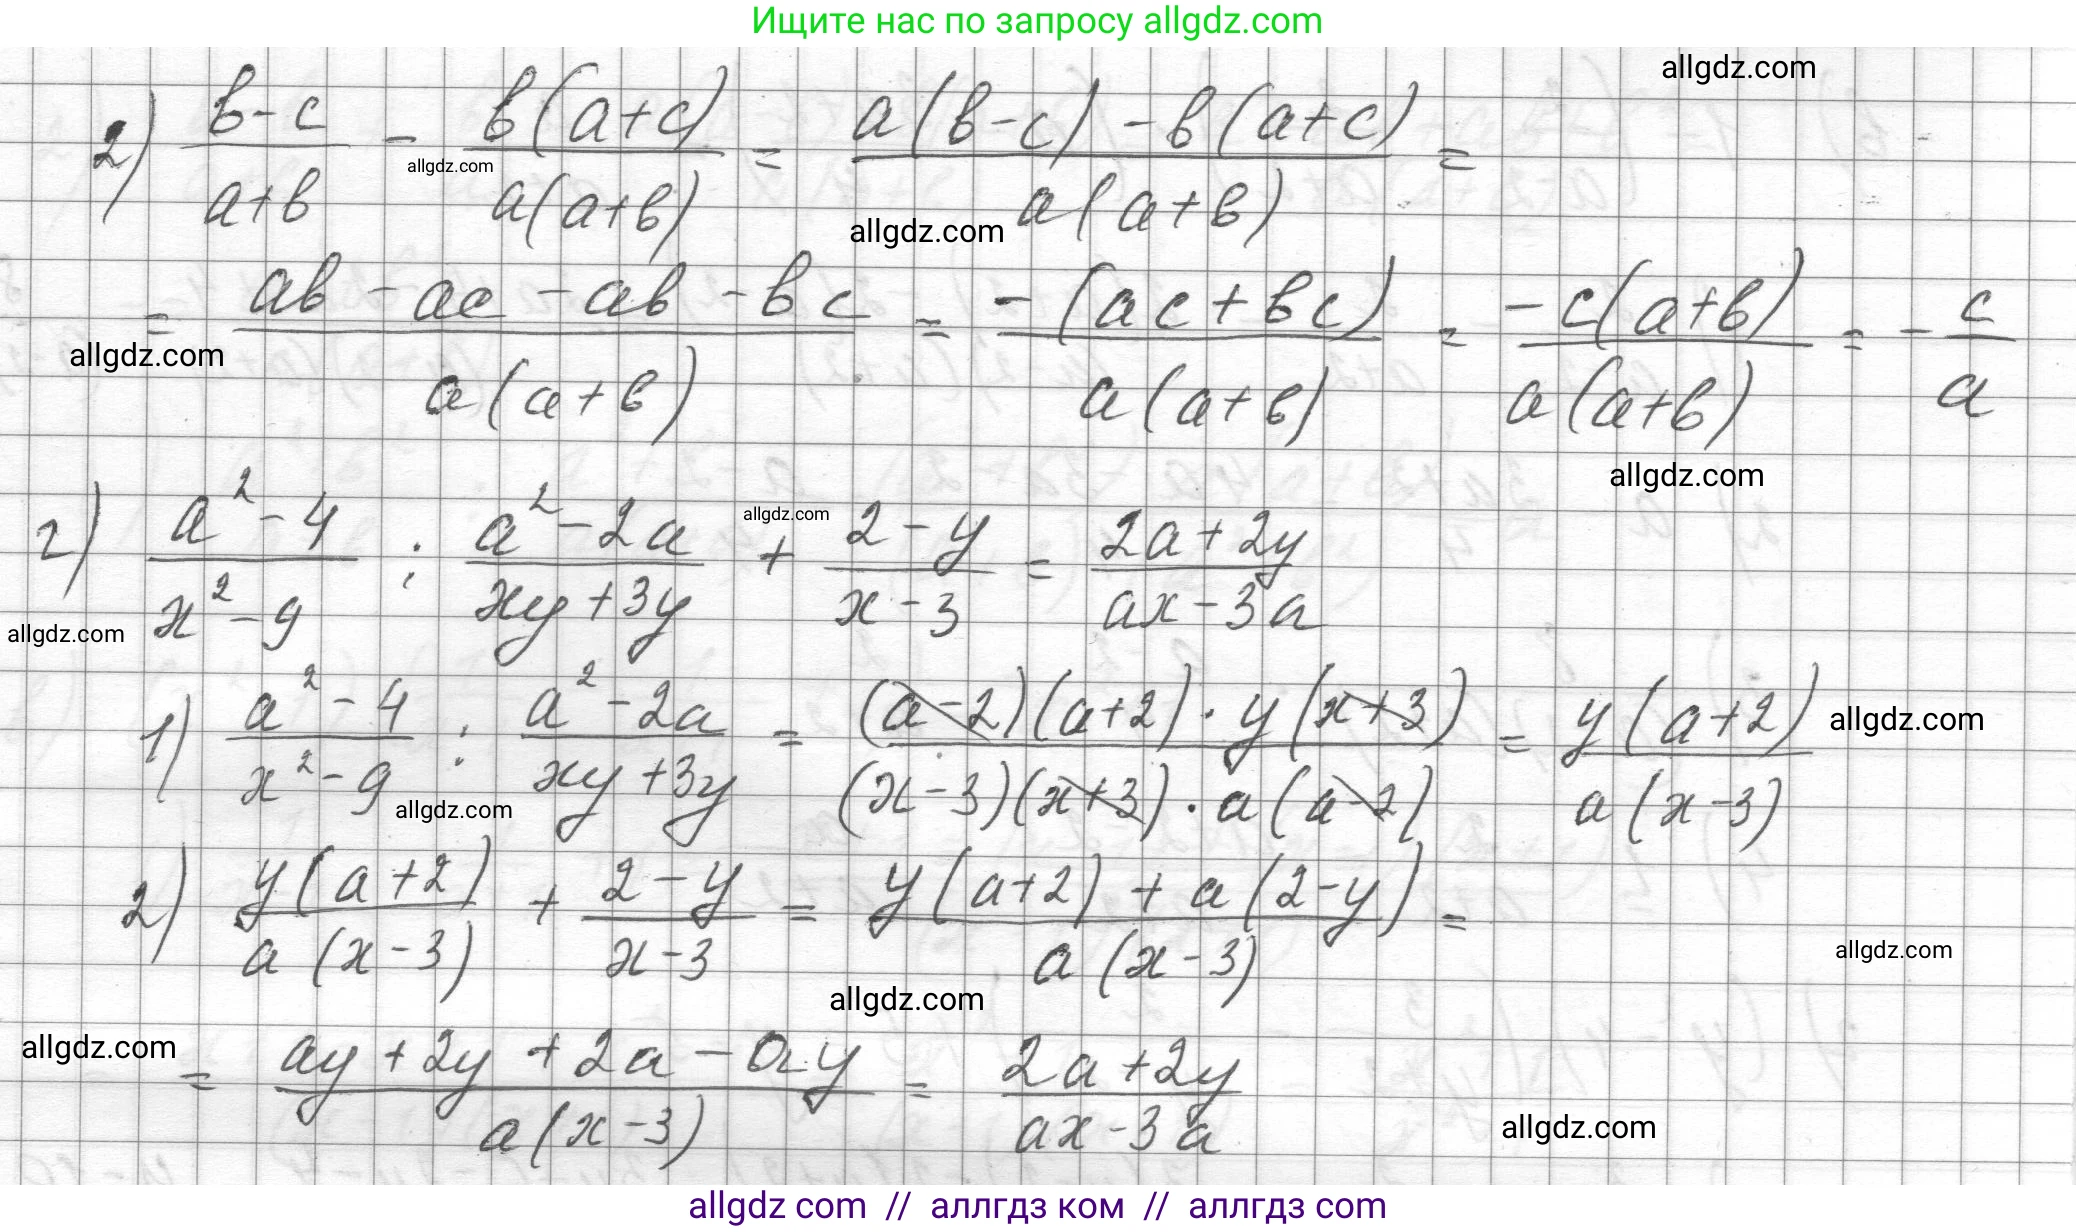 Ищите нас по запросу allgdz.com
allgdz.com
2) (в-с)/(а+в) - в(а+с)/(а(а+в)) = (а(в-с)-в(а+с))/(а(а+в)) =
allgdz.com
allgdz.com
= (ав-ас-ав-вс)/(а(а+в)) = -(ас+вс)/(а(а+в)) = -с(а+в)/(а(а+в)) = -с/а
allgdz.com
allgdz.com
г) (a²-4)/(x²-9) : (a²-2a)/(xy+3y) + (2-y)/(x-3) = (2a+2y)/(ax-3a)
allgdz.com
allgdz.com
1) (a²-4)/(x²-9) : (a²-2a)/(xy+3y) = ((a-2)(a+2)·y(x+3))/((x-3)(x+3)·a(a-2)) = y(a+2)/(a(x-3))
allgdz.com
allgdz.com
2) y(a+2)/(a(x-3)) + (2-y)/(x-3) = (y(a+2)+a(2-y))/(a(x-3)) =
allgdz.com
allgdz.com
allgdz.com
= (ay+2y+2a-ay)/(a(x-3)) = (2a+2y)/(ax-3a)
allgdz.com
allgdz com // аллгдз ком // аллгдз com